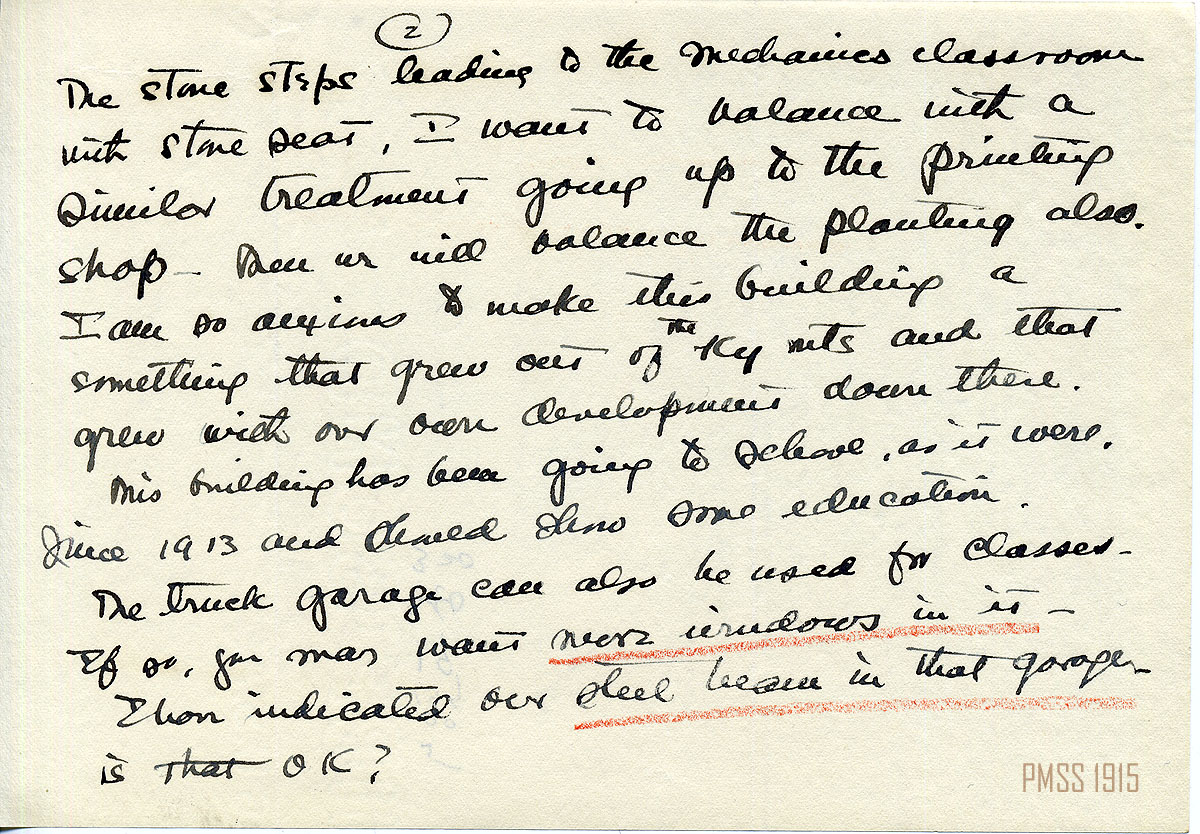 2
The stone steps leading to the mechanics classroom
with stone seat, I want to balance with a
similar treatment going up to the printing
shop - Then we will balance the planting also.
I am so anxious to make this building a
something that grew out of the Ky mts and that
grew with our own development down there.
This building has been going to school, as it were,
since 1913 and should show some education.
The truck garage can also be used for classes -
If so, you may want more windows in it -
I have indicated our steel beam in that garage -
is that OK?
PMSS 1915